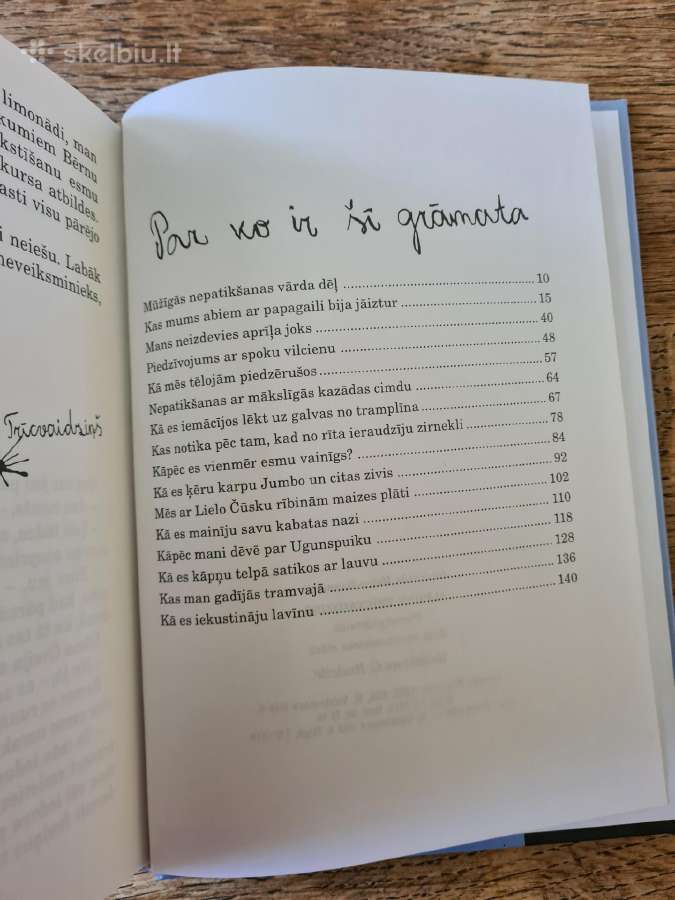 skelbiu.lt
limonādi, man
kumiem Bērnu
kstīšanu esmu
kursa atbildes.
asti visu pārējo
i neiešu. Labāk
neveiksminieks,
Trīcvaidziņš
Par ko ir šī grāmata
Mūžīgās nepatikšanas vārda dēļ 10
Kas mums abiem ar papagaili bija jāiztur 15
Mans neizdevies aprīļa joks 40
Piedzīvojums ar spoku vilcienu 48
Kā mēs tēlojām piedzērušos 57
Nepatikšanas ar mākslīgās kazādas cimdu 64
Kā es iemācījos lēkt uz galvas no tramplīna 67
Kas notika pēc tam, kad no rīta ieraudzīju zirnekli 78
Kāpēc es vienmēr esmu vainīgs? 84
Kā es ķēru karpu Jumbo un citas zivis 92
Mēs ar Lielo Čūsku rībinām maizes plāti 102
Kā es mainīju savu kabatas nazi 110
Kāpēc mani dēvē par Ugunspuiku 118
Kā es kāpņu telpā satikos ar lauvu 128
Kas man gadījās tramvajā 136
Kā es iekustināju lavīnu 140